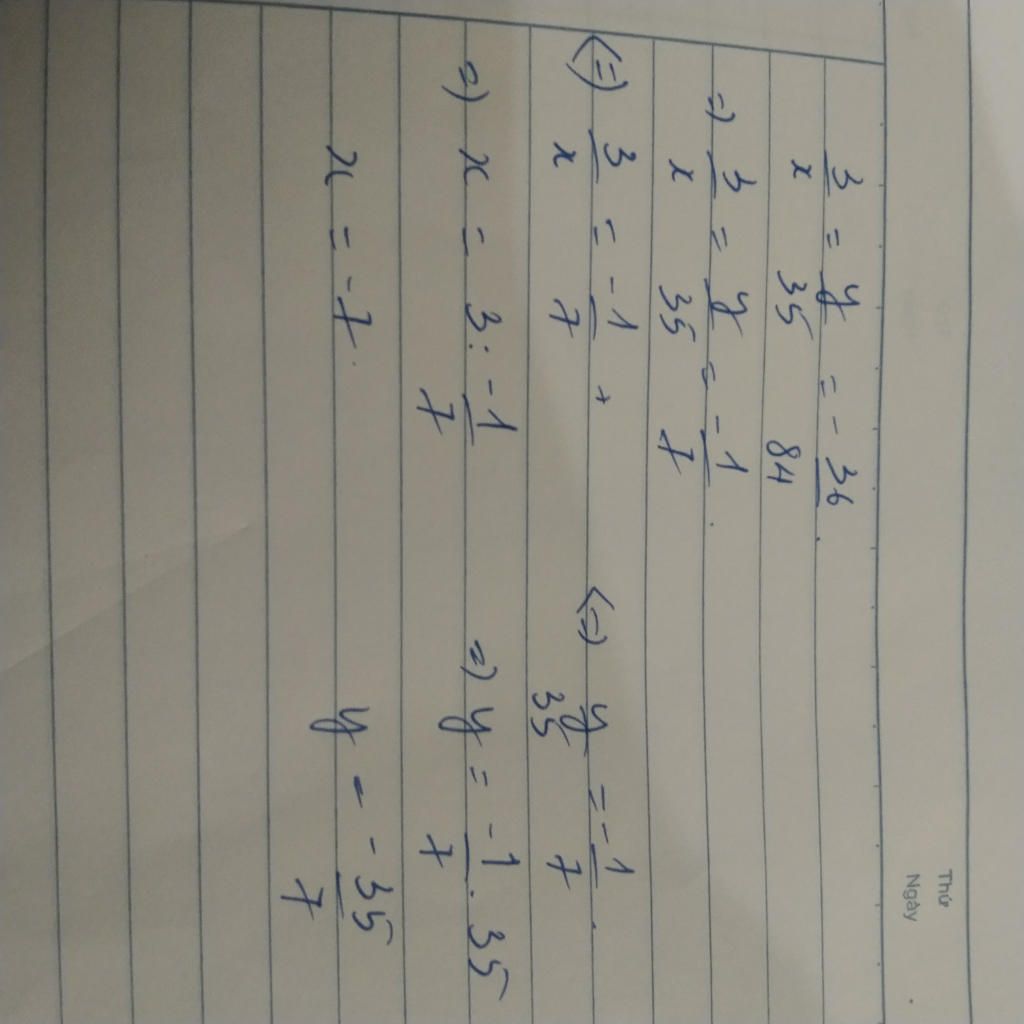 Thứ
Ngày
3/x = y/35 = -36/84.
=) 3/x = y/35 = -1/7.
(=) 3/x = -1/7 + (=) y/35 = -1/7.
=) x = 3 : -1/7 =) y = -1/7 . 35
x = -7. y = -35/7